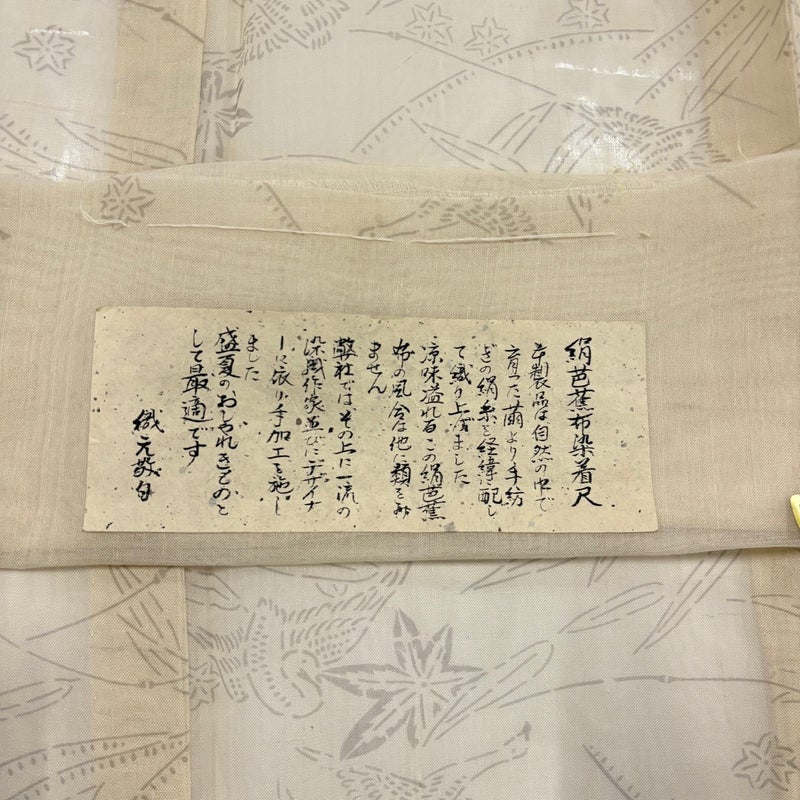 絹芭蕉布染着尺
本製品は自然の中で
育った繭より手紡
ぎの絹糸を経緯配し
て織り上げました
凉味溢れるこの絹芭蕉
布の風合は他に類をみ
ません
弊社ではその上に一流の
染織作家並びにデザイナ
ーに依り手加工を施し
ました
盛夏のおしゃれきものと
して最適です
織元敬白